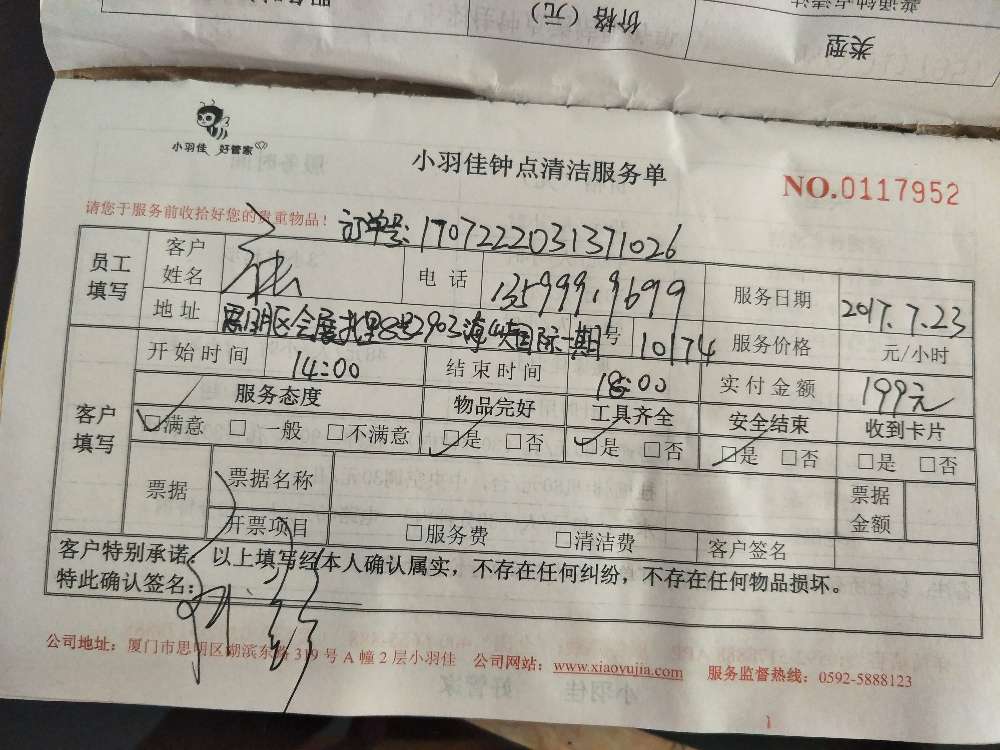 价格（元）
类型
小羽佳 好管家
小羽佳钟点清洁服务单
NO.0117952
请您于服务前收拾好您的贵重物品！
订单号：1707222031371026
员工填写
客户姓名
电话 135999.9699
服务日期 2017.7.23
地址 思明区会展北里8号2903海峡国际一期 号 10174
服务价格 元/小时
客户填写
开始时间 14:00
结束时间 18:00
实付金额 199元
服务态度 物品完好 工具齐全 安全结束 收到卡片
☑满意 □一般 □不满意 ☑是 □否 ☑是 □否 ☑是 □否 □是 □否
票据
票据名称
票据金额
开票项目 □服务费 □清洁费 客户签名
客户特别承诺：以上填写经本人确认属实，不存在任何纠纷，不存在任何物品损坏。
特此确认签名：
公司地址：厦门市思明区湖滨东路319号A幢2层小羽佳 公司网站：www.xiaoyujia.com 服务监督热线：0592-5888123
1